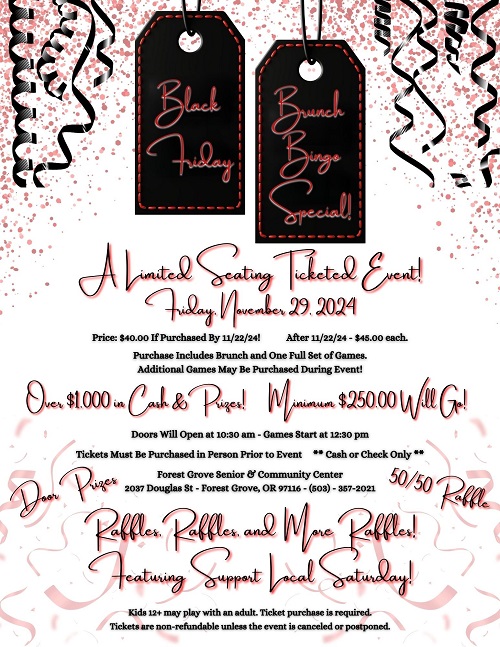 Black
Friday
Brunch
Bingo
Special!
A Limited Seating Ticketed Event!
Friday, November 29, 2024
Price: $40.00 If Purchased By 11/22/24! After 11/22/24 - $45.00 each.
Purchase Includes Brunch and One Full Set of Games.
Additional Games May Be Purchased During Event!
Over $1,000 in Cash & Prizes! Minimum $250.00 Will Go!
Doors Will Open at 10:30 am - Games Start at 12:30 pm
Tickets Must Be Purchased in Person Prior to Event ** Cash or Check Only **
Door Prizes
Forest Grove Senior & Community Center
2037 Douglas St - Forest Grove, OR 97116 - (503) - 357-2021
50/50 Raffle
Raffles, Raffles, and More Raffles!
Featuring Support Local Saturday!
Kids 12+ may play with an adult. Ticket purchase is required.
Tickets are non-refundable unless the event is canceled or postponed.